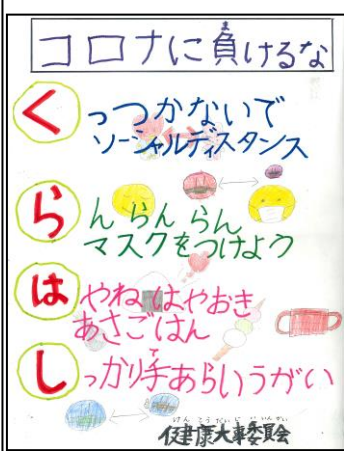 コロナに負けるな
くっつかないで
ソーシャルディスタンス
らんらんらん
マスクをつけよう
はやねはやおき
あさごはん
しっかり手あらいうがい
けんこうだいじいいんかい
健康大事委員会